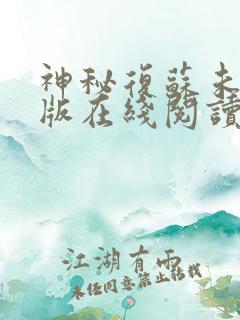 神秘復蘇未
版在綫閱讀
江湖有雨
未经同意禁止转载